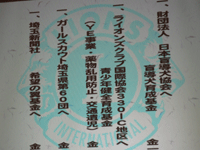 一、財団法人 日本盲導犬協会へ
盲導犬育成基金 金
一、ライオンズクラブ国際協会330-C地区へ
青少年健全育成基金
(YE事業・薬物乱用防止・交通遺児) 金
一、ガールスカウト埼玉県第60団へ 金
一、埼玉新聞社
希望の露基金へ 金
LIONS
INTERNATIONAL